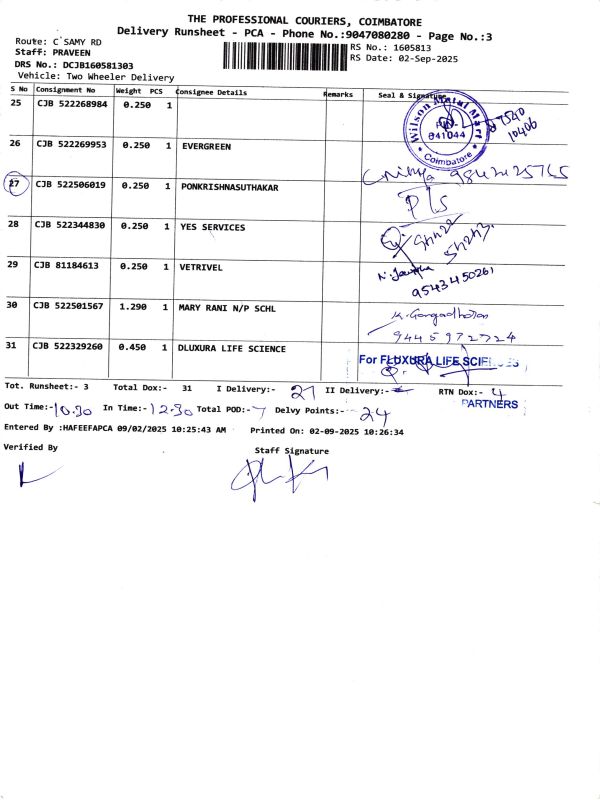 THE PROFESSIONAL COURIERS, COIMBATORE
Delivery Runsheet - PCA - Phone No.:9047080280 - Page No.:3
Route: C`SAMY RD
RS No.: 1605813
Staff: PRAVEEN
RS Date: 02-Sep-2025
DRS No.: DCJB160581303
Vehicle: Two Wheeler Delivery
S No Consignment No Weight PCS Consignee Details Remarks Seal & Signature
25 CJB 522268984 0.250 1 Wilson Matul Mart 641044 Coimbatore
26 CJB 522269953 0.250 1 EVERGREEN 9842425765
27 CJB 522506019 0.250 1 PONKRISHNASUTHAKAR
28 CJB 522344830 0.250 1 YES SERVICES
29 CJB 81184613 0.250 1 VETRIVEL 9543450261
30 CJB 522501567 1.290 1 MARY RANI N/P SCHL K. Gangadharan
9445972724
31 CJB 522329260 0.450 1 DLUXURA LIFE SCIENCE For FLUXURA LIFE SCIENCES
Tot. Runsheet:- 3 Total Dox:- 31 I Delivery:- 27 II Delivery:- RTN Dox:- 4
PARTNERS
Out Time:- 10.30 In Time:- 12.30 Total POD:- 7 Delvy Points:- 24
Entered By :HAFEEFAPCA 09/02/2025 10:25:43 AM Printed On: 02-09-2025 10:26:34
Verified By Staff Signature